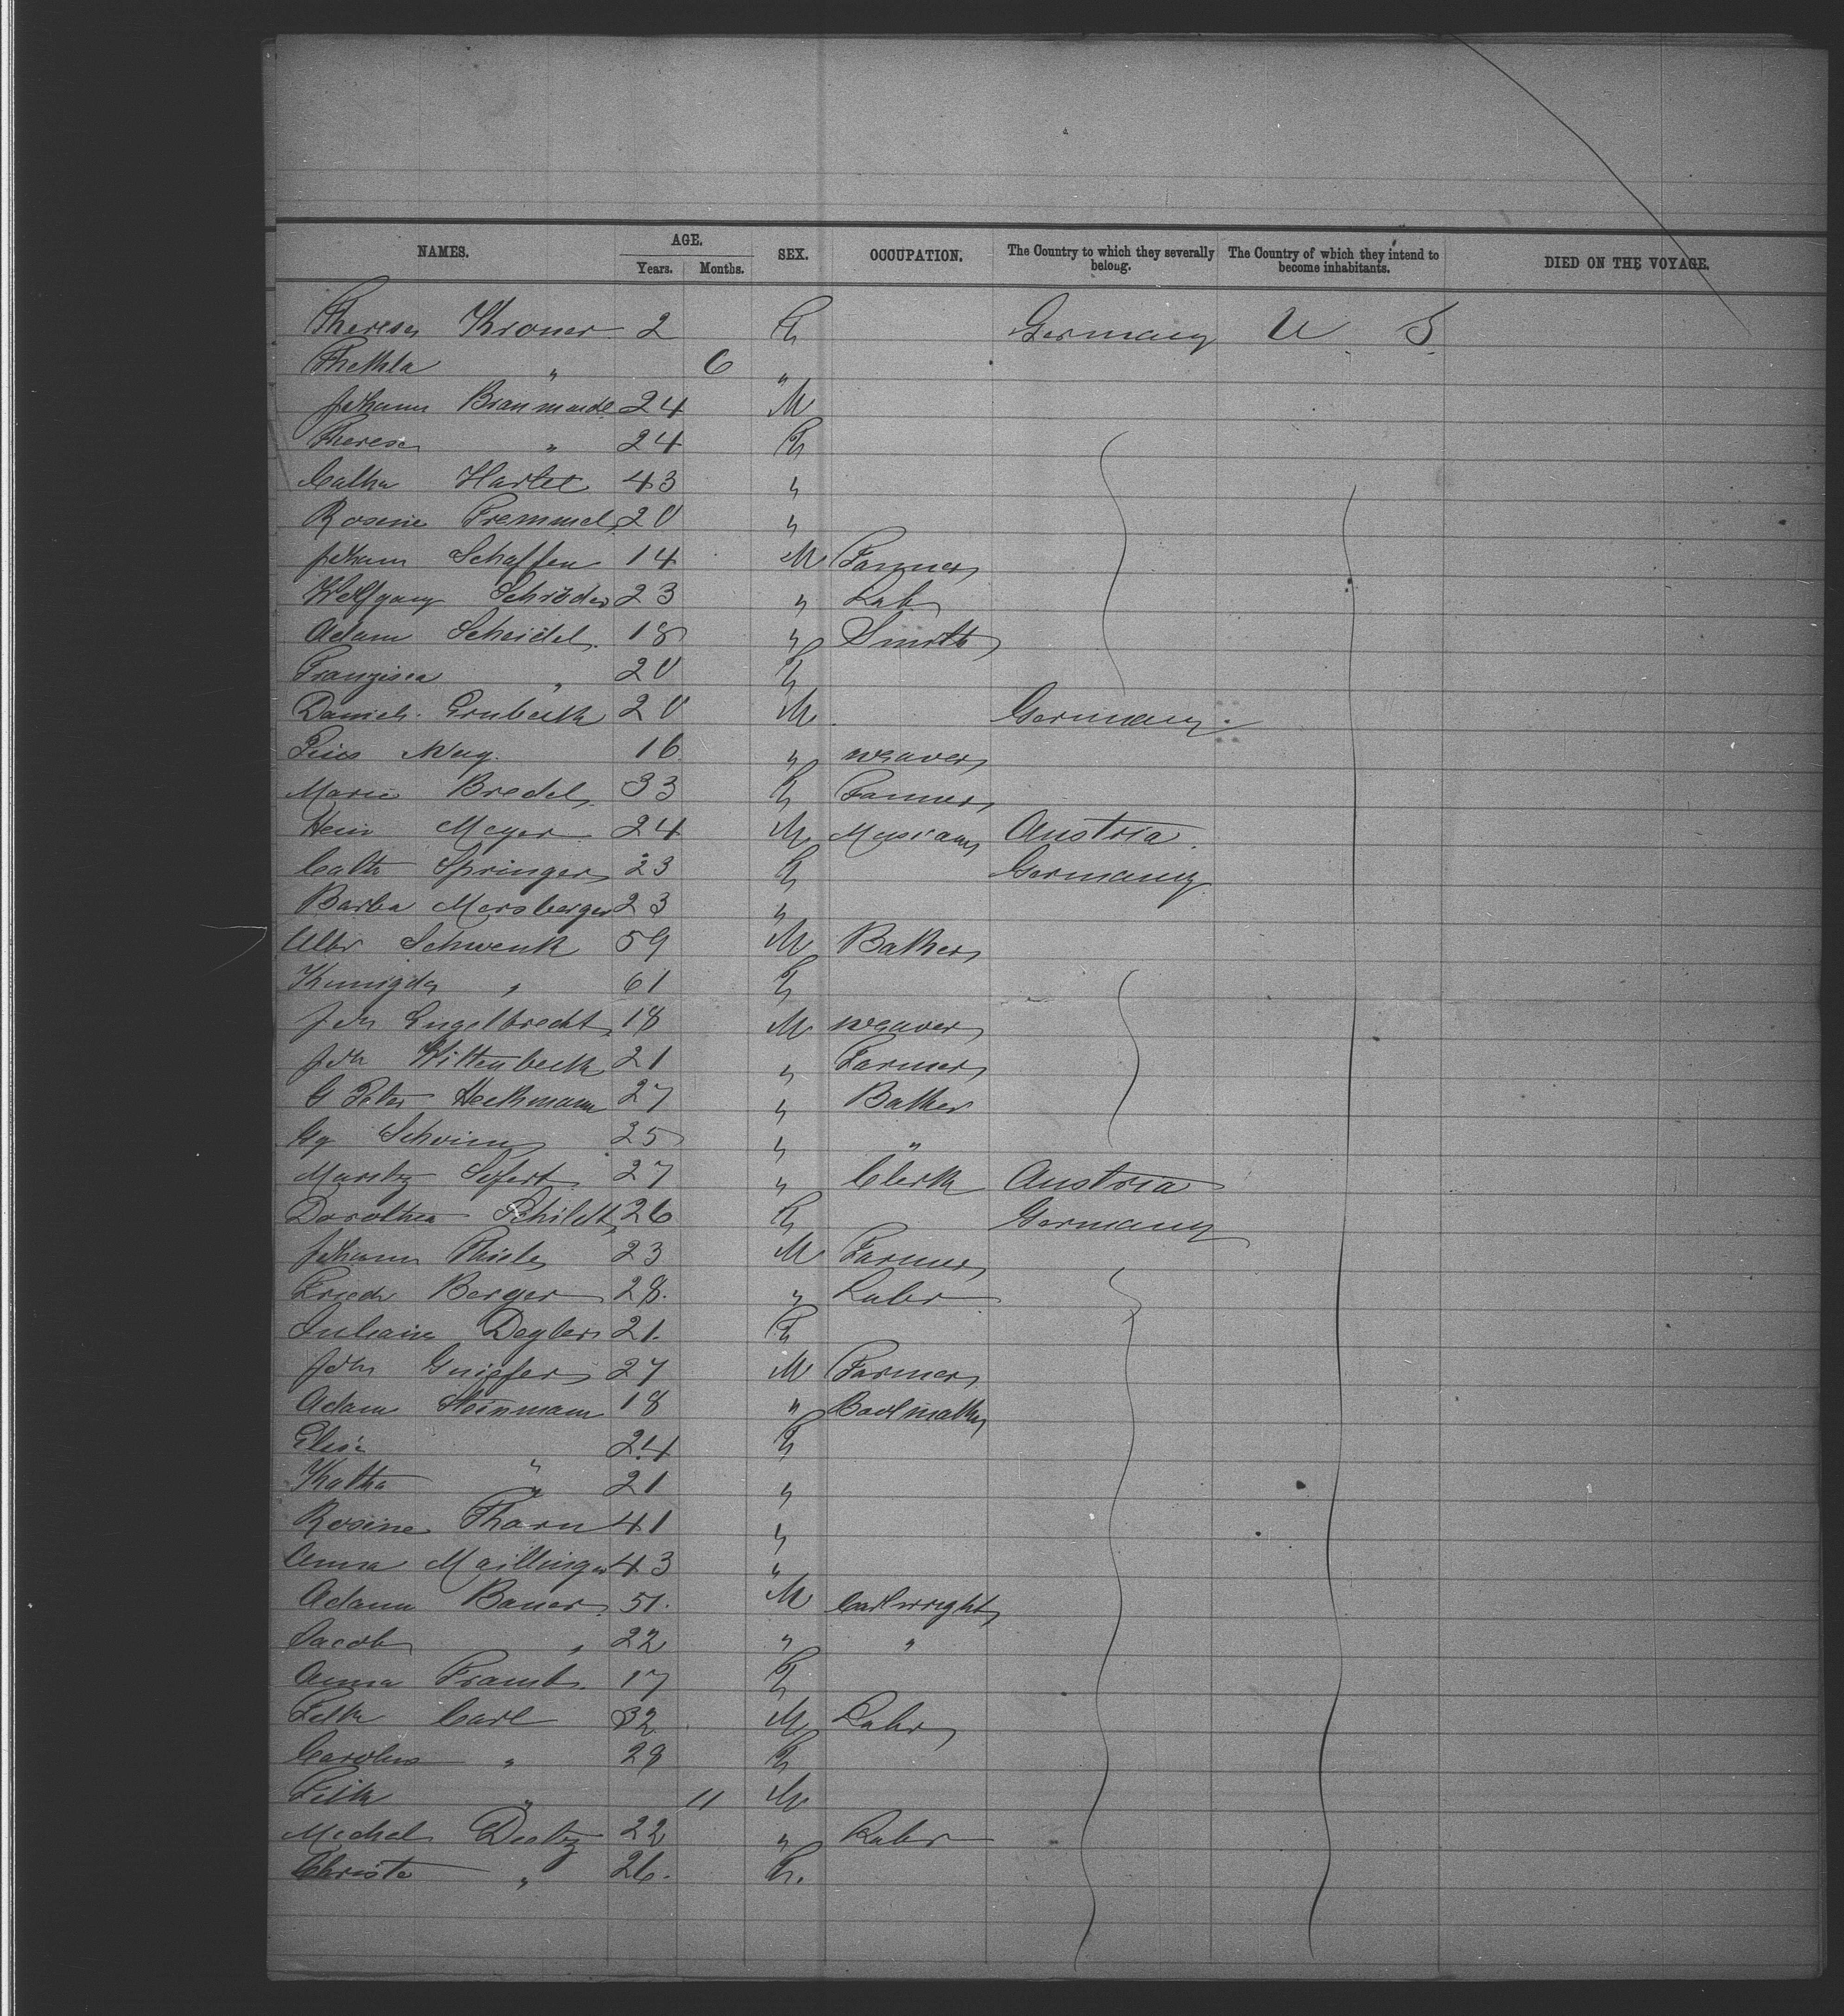 NAMES. AGE. SEX. OCCUPATION. The Country to which they severally belong. The Country of which they intend to become inhabitants. DIED ON THE VOYAGE.
Years. Months.
Theresa Kroner 2 F Germany U S
Thekla " 6 "
Johann 24 M
Theresa " 24 F
Catha Hartel 43 "
Rosine Tremmel 20 "
Johann 14 M Farmer
Wolfgang Schröder 23 " Lab
Adam Scheidel 18 " Smith
Franzisca " 20 F
Daniel Grubeck 20 M Germany
Pius May 16 " weaver
Marie Bredel 33 F Farmer
Hein Meyer 24 M Musician Austria
Cath Springer 23 F Germany
Barba Mersberger 23 "
Albr Schwenk 59 M Bakher
Kunigda " 61 F
Joh Engelbrecht 18 M weaver
Joh Wittenbeck 21 " Farmer
G Peter Heckmann 27 " Bakher
Gg 25 " "
Moritz Sefert 27 " Clerk Austria
Dorothea Schildt 26 F Germany
Johann Thiele 23 M Farmer
Friedr Berger 28. " Labr
Juliane Degler 21. F
Joh 27 M Farmer
Adam Steinmann 18 "
Elise " 24 F
Katha " 21 "
Rosine Thorn 41 "
Anna Maillinger 43 "
Adam Bauer 51. M Cartwright
Jacob " 22 " "
Anna 17 F
Carl 32 M Labr
Caroline " 28 F
" 11 M
Michel 22 " Labr
Christe " 26. F.